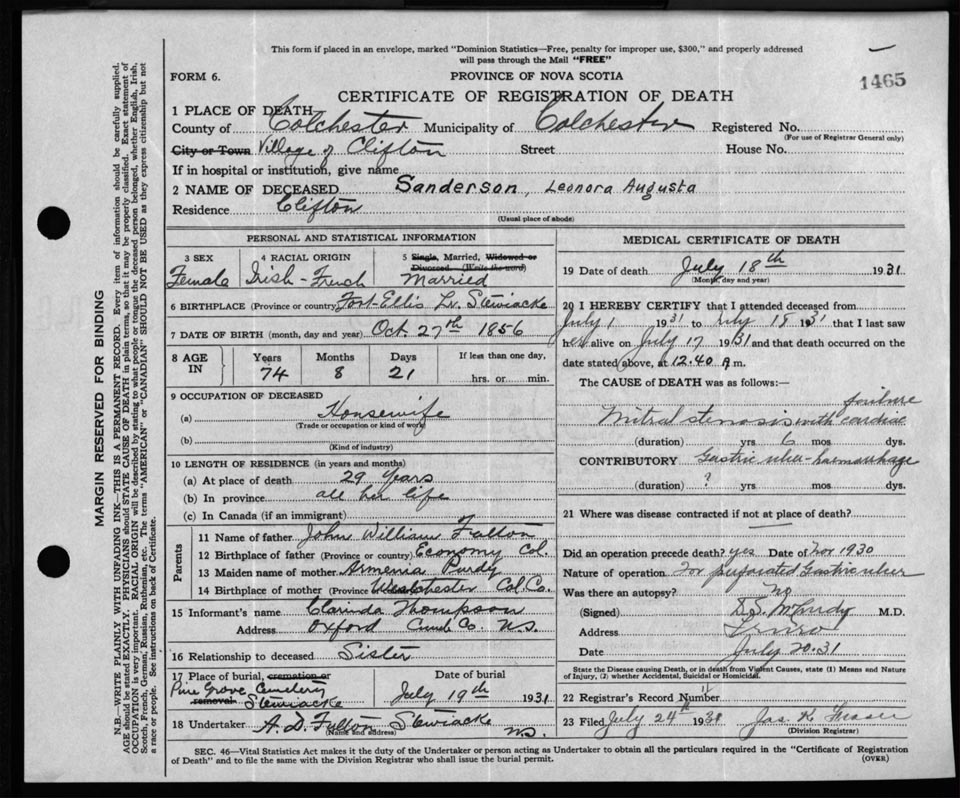 This form if placed in an envelope, marked "Dominion Statistics—Free, penalty for improper use, $300," and properly addressed
will pass through the Mail "FREE"
FORM 6.
PROVINCE OF NOVA SCOTIA
1465
CERTIFICATE OF REGISTRATION OF DEATH
1 PLACE OF DEATH
County of Colchester Municipality of Colchester Registered No.
(For use of Registrar General only)
City or Town Village of Clifton Street House No.
If in hospital or institution, give name
2 NAME OF DECEASED Sanderson, Leonora Augusta
Residence Clifton
(Usual place of abode)
PERSONAL AND STATISTICAL INFORMATION
3 SEX 4 RACIAL ORIGIN 5 Single, Married, Widowed or
Divorced. (Write the word)
Female Irish-French Married
6 BIRTHPLACE (Province or country) Fort Ellis Lr. Stewiacke
7 DATE OF BIRTH (month, day and year) Oct. 27th 1856
8 AGE IN Years Months Days If less than one day,
74 8 21 hrs. or min.
9 OCCUPATION OF DECEASED
(a) Housewife
(Trade or occupation or kind of work)
(b)
(Kind of industry)
10 LENGTH OF RESIDENCE (in years and months)
(a) At place of death 29 years
(b) In province all her life
(c) In Canada (if an immigrant)
Parents
11 Name of father John William Fulton
12 Birthplace of father (Province or country) Economy Col.
13 Maiden name of mother Armenia Purdy
14 Birthplace of mother (Province or country) Westchester Col. Co.
15 Informant's name Clarinda Thompson
Address Oxford Cumb Co. N.S.
16 Relationship to deceased Sister
17 Place of burial, cremation or removal Date of burial
Pine Grove Cemetery
Stewiacke July 19th 1931
18 Undertaker A. D. Fulton Stewiacke
(Name and address) N.S.
MEDICAL CERTIFICATE OF DEATH
19 Date of death July 18th 1931
(Month, day and year)
20 I HEREBY CERTIFY that I attended deceased from
July 1 1931 to July 18 1931 that I last saw
her alive on July 17 1931 and that death occurred on the
date stated above, at 12.40 A m.
The CAUSE of DEATH was as follows:—
Mitral stenosis with cardiac failure
(duration) yrs 6 mos dys.
CONTRIBUTORY Gastric ulcer-haemorrhage
(duration) ? yrs. mos. dys.
21 Where was disease contracted if not at place of death?
Did an operation precede death? yes Date of Nov 1930
Nature of operation For perforated Gastric ulcer
Was there an autopsy? no
(Signed) M.D.
Address Truro
Date July 20.31
State the Disease causing Death, or in death from Violent Causes, state (1) Means and Nature
of Injury, (2) whether Accidental, Suicidal or Homicidal.
22 Registrar's Record Number
23 Filed July 24th 1931 Jas. K. Fraser
(Division Registrar)
SEC. 46—Vital Statistics Act makes it the duty of the Undertaker or person acting as Undertaker to obtain all the particulars required in the "Certificate of Registration
of Death" and to file the same with the Division Registrar who shall issue the burial permit.
(OVER)
MARGIN RESERVED FOR BINDING
N.B.—WRITE PLAINLY WITH UNFADING INK—THIS IS A PERMANENT RECORD. Every item of information should be carefully supplied.
AGE should be stated EXACTLY. PHYSICIANS should STATE CAUSE OF DEATH in plain terms, so that it may be properly classified. Exact statement of
OCCUPATION is very important. RACIAL ORIGIN will be described by stating to what people or tongue the deceased person belonged, whether English, Irish,
Scotch, French, German, Russian, Ruthenian, etc. The terms "AMERICAN" or "CANADIAN" SHOULD NOT BE USED as they express citizenship but not
a race or people. See instructions on back of Certificate.